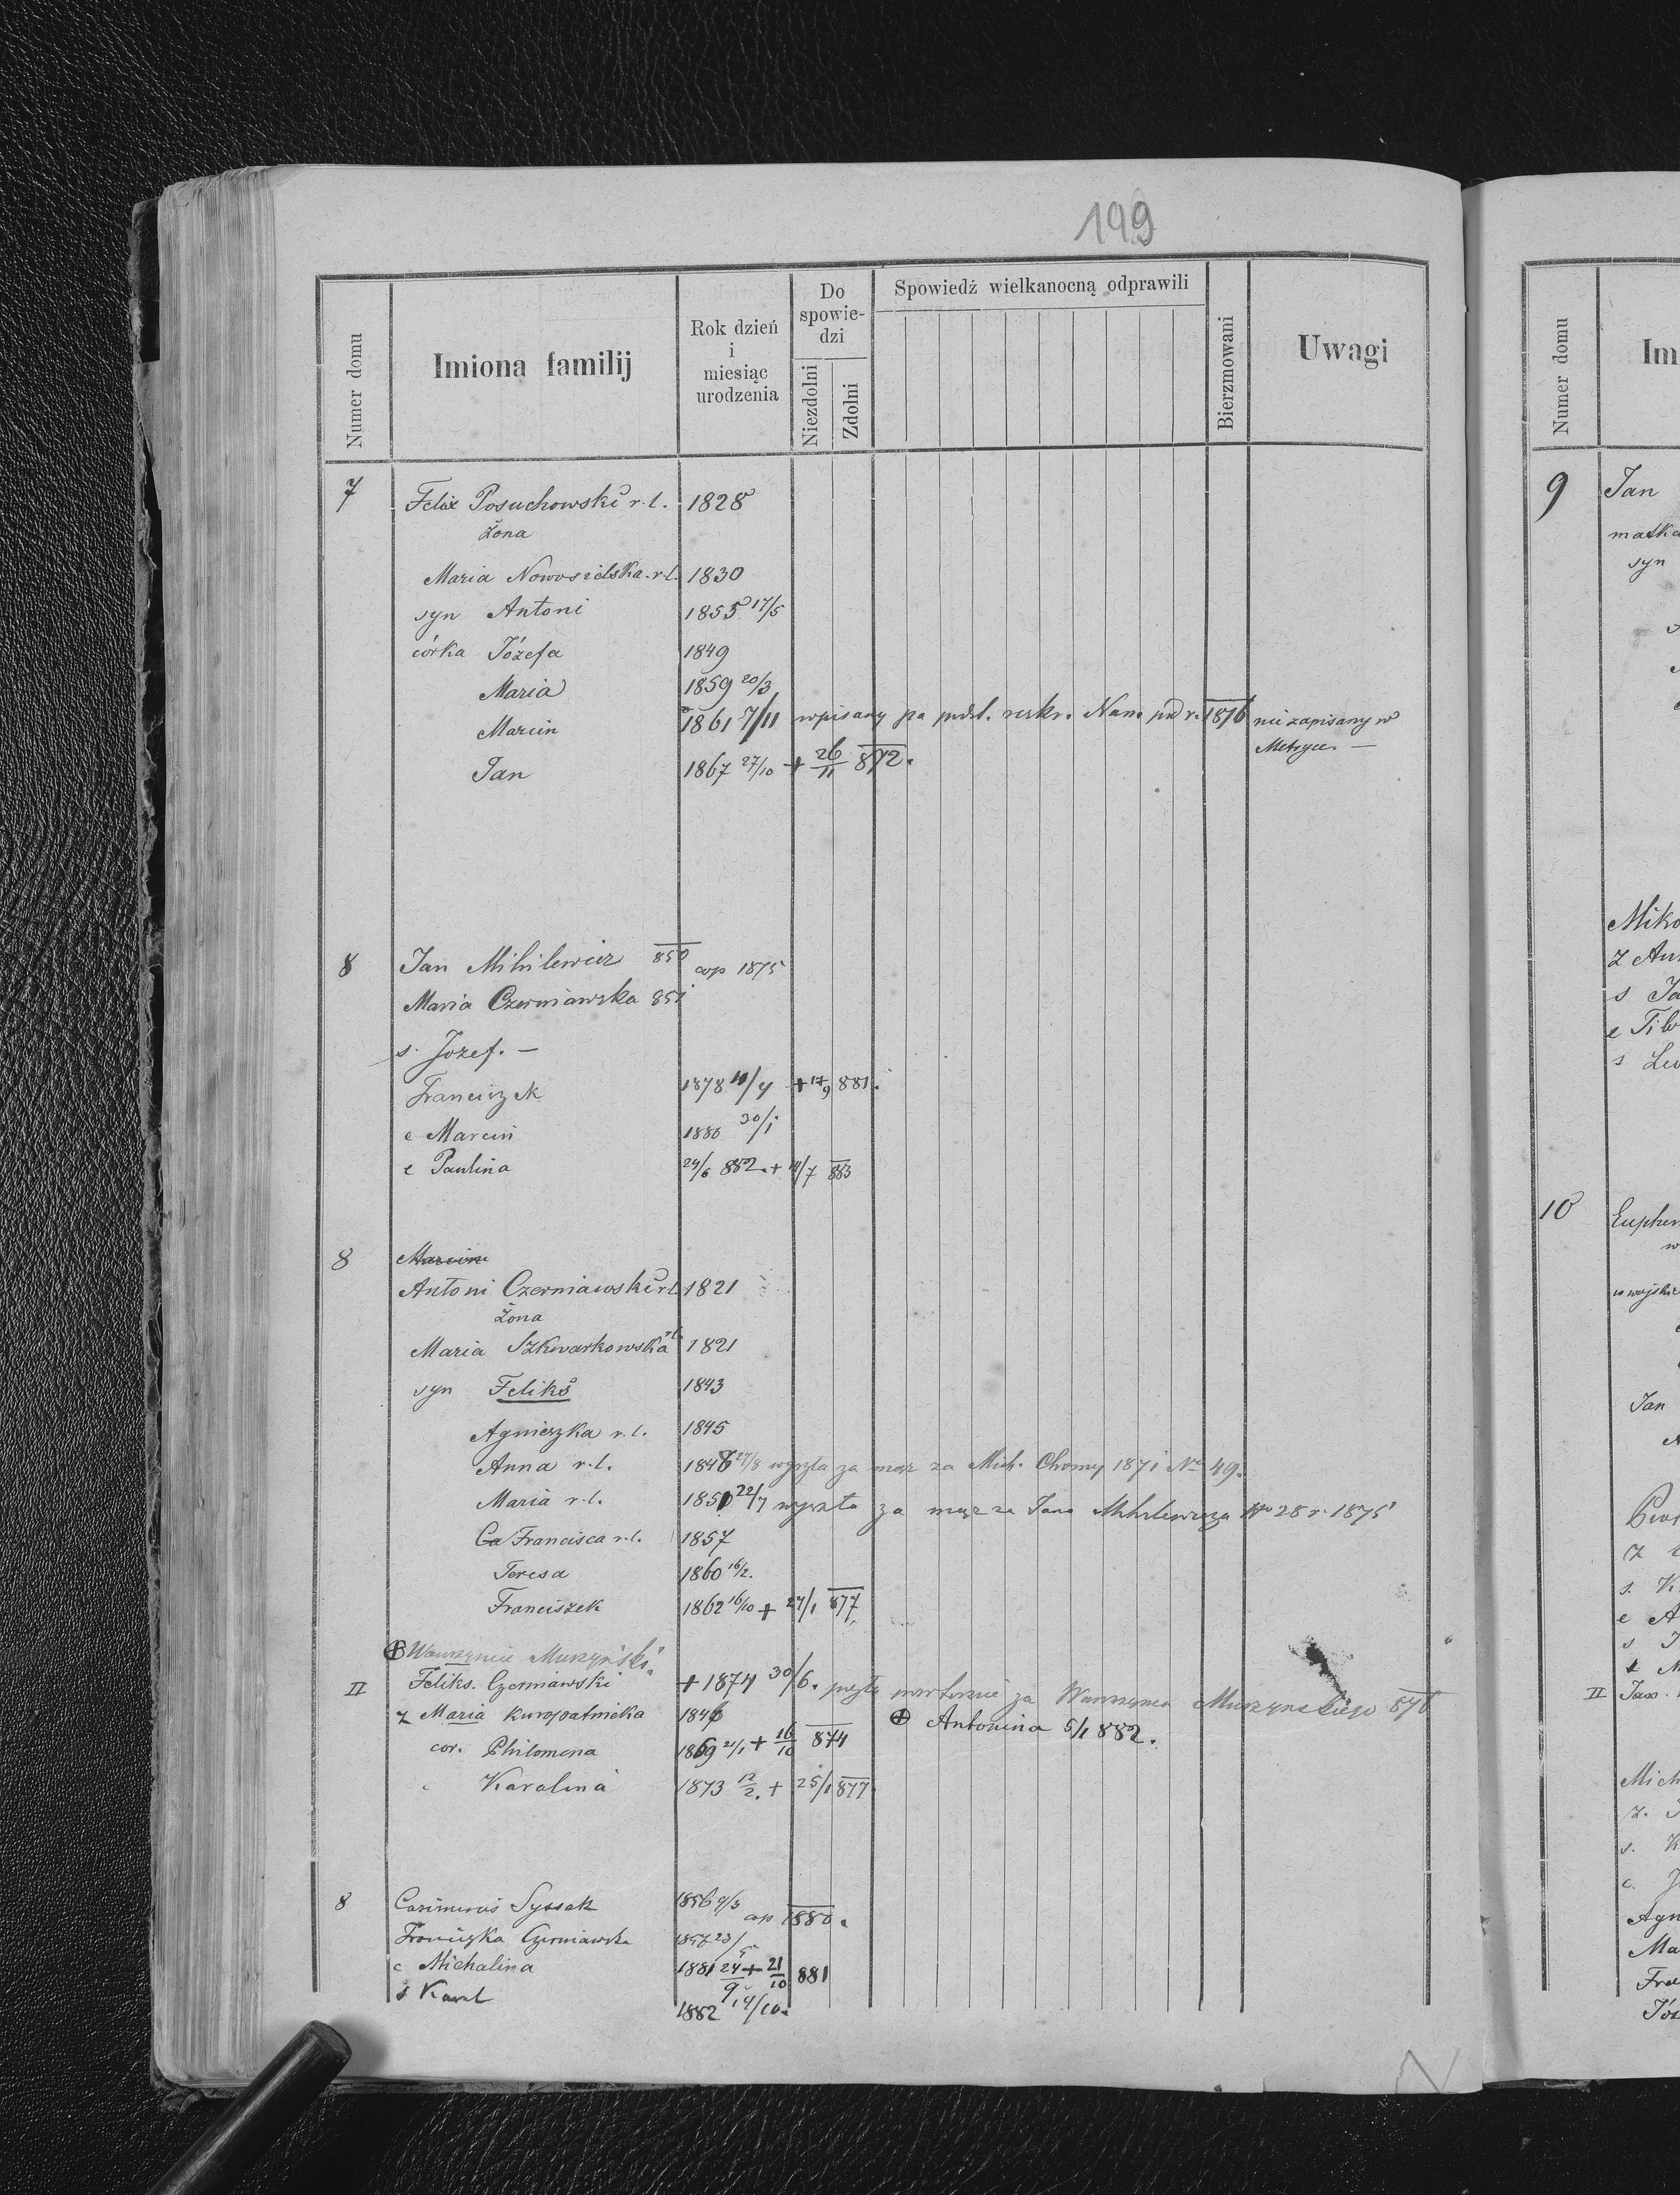 199
Numer domu | Imiona familij | Rok dzień i miesiąc urodzenia | Do spowiedzi | Niezdolni | Zdolni | Spowiedż wielkanocną odprawili | Bierzmowani | Uwagi
7 Felix Posuchowski r. l. 1828
żona
Maria Nowosielska r. l. 1830
syn Antoni 1855 17/5
córka Józefa 1849
Maria 1859 20/3
Marcin 1861 7/11 wpisany na podst. reskr. Nam. pd r. 1876 nie zapisany w
Metryce. —
Jan 1867 27/10 + 26/11 872.
8 Jan Mihilewicz 850 cop 1875
Maria Czerniawska 851
s. Jozef. —
Franciszek 1878 10/4 + 17/9 881.
c Marcin 1880 30/1
c Paulina 24/6 882. + 14/7 883
8 Marcin
Antoni Czerniawski r. l. 1821
żona
Maria Szkwarkowska r. l. 1821
syn Feliks 1843
Agnieszka r. l. 1845
Anna r. l. 1848 27/8 wyszła za mąż za Mich. Chomy 1871 No 49.
Maria r. l. 1851 22/7 wyszła za mąż za Jana Mihilewicza No 28 r. 1875
Ca Francisca r. l. 1857
Teresa 1860 16/2.
Franciszek 1862 16/10 + 27/1 877
⊕ Wawrzyniec Muszyński
II Feliks. Czerniawski + 1874 30/6. powtórnie za Wawrzyńca Muszyńskiego 876
z Maria Kuropatnicka 1846 ⊕ Antonina 5/1 882.
cor. Philomena 1869 21/1 + 16/10 874
Karolina 1873 12/2. + 25/1 877
8 Casimirus Syssak 1856 9/3 cop 1880.
Franciszka Czerniawska 1857 23/5
c Michalina 1881 24/9 + 21/10 881
s Karol 1882 14/10.
Numer domu | Im
9 Jan
matka
syn
Miko
z An
s Ja
c
s Leo
10 Euphem
w wojsku
Jan
z
s. K
c A
s J
II Jan
Mich
z. J
s. K
c. J
Agn
Ma
Fra
Józ